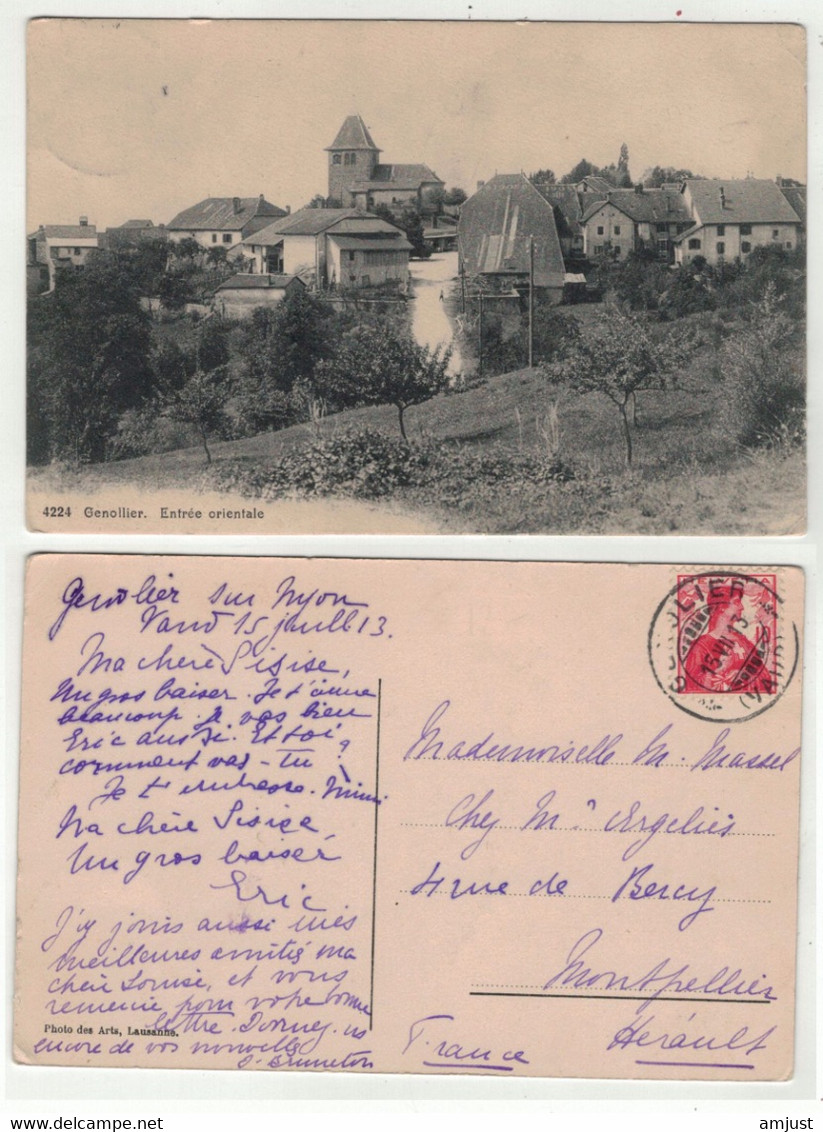 4224 Genollier. Entrée orientale
Genolier sur Nyon
Vaud 15 juill 13.
Ma chère Sisise,
Un gros baiser. Je t'aime
beaucoup. Je vas bien
Eric aussi. Et toi
comment vas-tu?
Je t'embrasse. Mimi
Ma chère Sisise
Un gros baiser
Eric
J'y joins aussi mes
meilleures amitiés ma
chère Louise, et vous
remercie pour votre bonne
lettre. Donnez
encore de vos nouvelles
Bruneton
Photo des Arts, Lausanne.
GENOLIER
15.VII.13
(VAUD)
Mademoiselle M. Massel
Chez Mr Argeliès
4 rue de Bercy
Montpellier
Hérault
France
delcampe.net
amjust